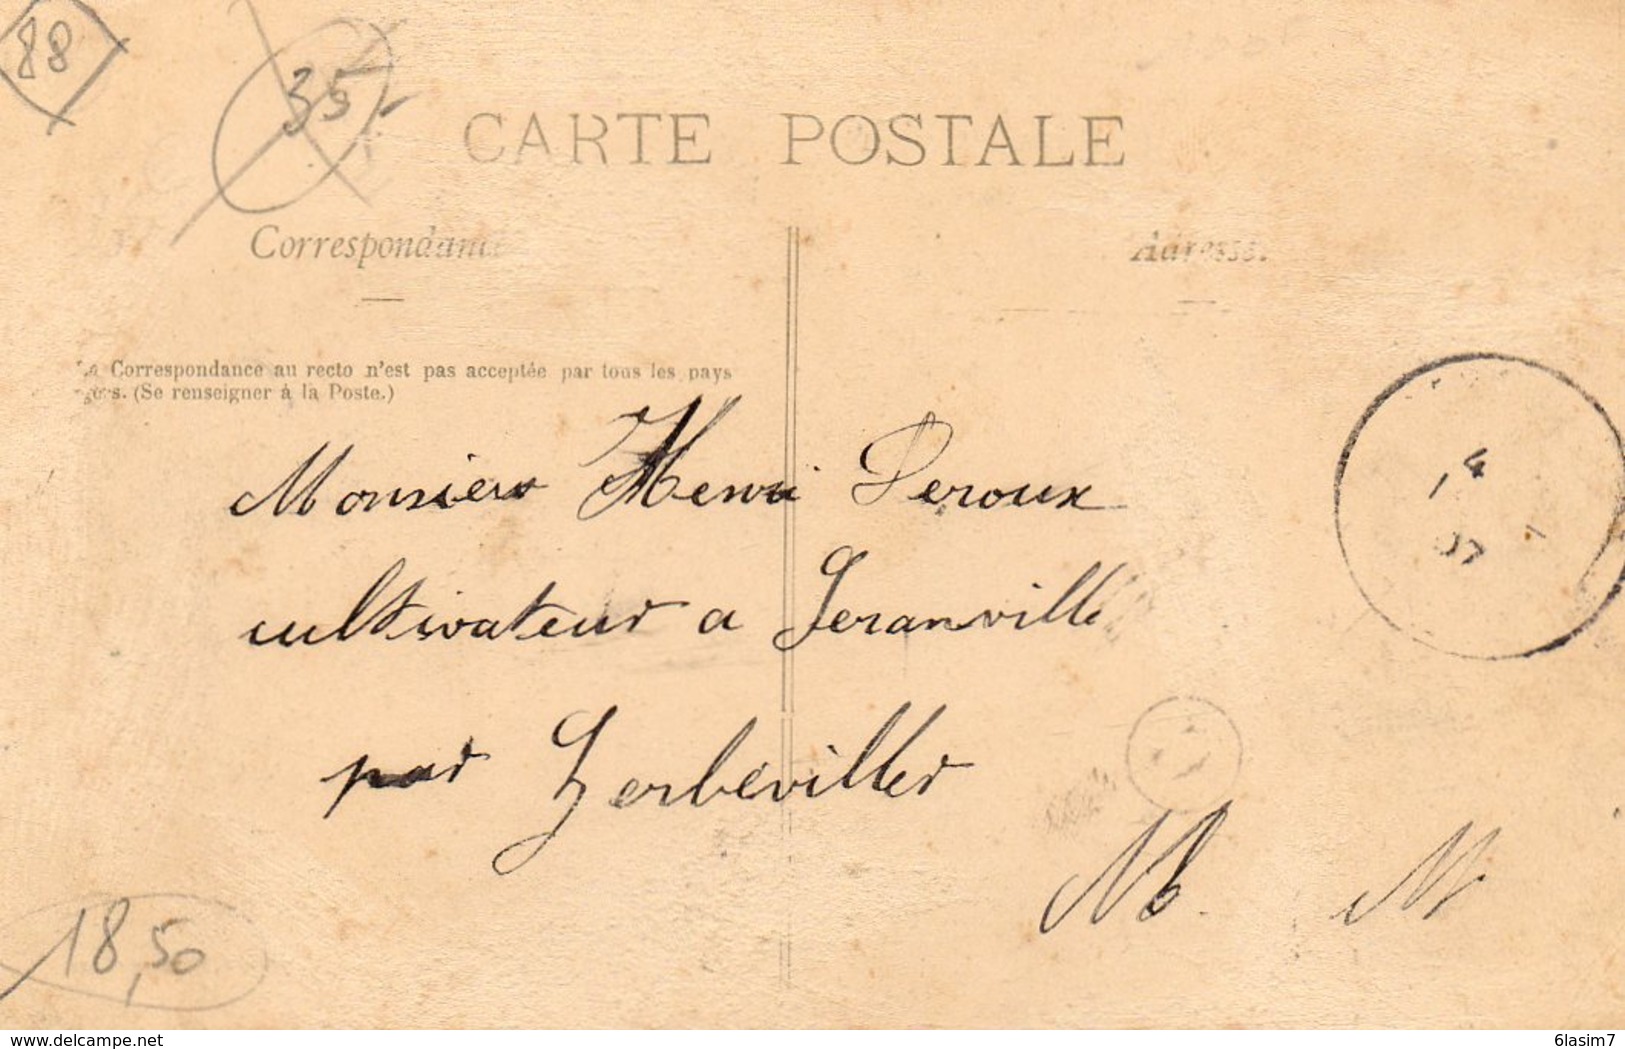 88
35
CARTE POSTALE
Correspondance
Adresse.
La Correspondance au recto n'est pas acceptée par tous les pays
(Se renseigner à la Poste.)
Monsieur Henri Peroux
cultivateur a Seranville
par Gerbéviller
14
07
M M
18,50
www.delcampe.net
6lasim7